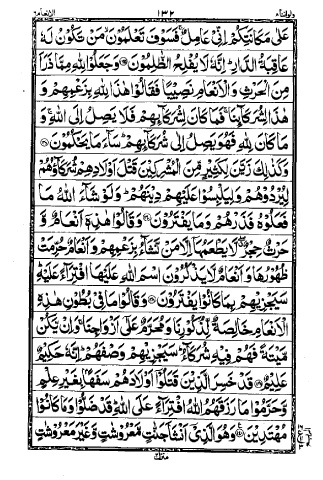 ولواننا ۸ ۱۳۲ الانعام ۶
عَلٰى مَكَانَتِكُمْ اِنِّىْ عَامِلٌ ۚ فَسَوْفَ تَعْلَمُوْنَ ۙ مَنْ تَكُوْنُ لَهٗ
عَاقِبَةُ الدَّارِ ؕ اِنَّهٗ لَا يُفْلِحُ الظّٰلِمُوْنَ ﴿۱۳۵﴾ وَجَعَلُوْا لِلّٰهِ مِمَّا ذَرَاَ
مِنَ الْحَرْثِ وَالْاَنْعَامِ نَصِيْبًا فَقَالُوْا هٰذَا لِلّٰهِ بِزَعْمِهِمْ وَ
هٰذَا لِشُرَكَآئِنَا ۚ فَمَا كَانَ لِشُرَكَآئِهِمْ فَلَا يَصِلُ اِلَى اللّٰهِ ۚ وَ
مَا كَانَ لِلّٰهِ فَهُوَ يَصِلُ اِلٰى شُرَكَآئِهِمْ ؕ سَآءَ مَا يَحْكُمُوْنَ ﴿۱۳۶﴾
وَكَذٰلِكَ زَيَّنَ لِكَثِيْرٍ مِّنَ الْمُشْرِكِيْنَ قَتْلَ اَوْلَادِهِمْ شُرَكَآؤُهُمْ
لِيُرْدُوْهُمْ وَلِيَلْبِسُوْا عَلَيْهِمْ دِيْنَهُمْ ؕ وَلَوْ شَآءَ اللّٰهُ مَا
فَعَلُوْهُ فَذَرْهُمْ وَمَا يَفْتَرُوْنَ ﴿۱۳۷﴾ وَقَالُوْا هٰذِهٖۤ اَنْعَامٌ وَّ
حَرْثٌ حِجْرٌ ۖ لَّا يَطْعَمُهَاۤ اِلَّا مَنْ نَّشَآءُ بِزَعْمِهِمْ وَاَنْعَامٌ حُرِّمَتْ
ظُهُوْرُهَا وَاَنْعَامٌ لَّا يَذْكُرُوْنَ اسْمَ اللّٰهِ عَلَيْهَا افْتِرَآءً عَلَيْهِ ؕ
سَيَجْزِيْهِمْ بِمَا كَانُوْا يَفْتَرُوْنَ ﴿۱۳۸﴾ وَقَالُوْا مَا فِىْ بُطُوْنِ هٰذِهِ
الْاَنْعَامِ خَالِصَةٌ لِّذُكُوْرِنَا وَمُحَرَّمٌ عَلٰٓى اَزْوَاجِنَا ۚ وَاِنْ يَّكُنْ
مَّيْتَةً فَهُمْ فِيْهِ شُرَكَآءُ ؕ سَيَجْزِيْهِمْ وَصْفَهُمْ ؕ اِنَّهٗ حَكِيْمٌ
عَلِيْمٌ ﴿۱۳۹﴾ قَدْ خَسِرَ الَّذِيْنَ قَتَلُوْۤا اَوْلَادَهُمْ سَفَهًۢا بِغَيْرِ عِلْمٍ
وَّحَرَّمُوْا مَا رَزَقَهُمُ اللّٰهُ افْتِرَآءً عَلَى اللّٰهِ ؕ قَدْ ضَلُّوْا وَمَا كَانُوْا
مُهْتَدِيْنَ ﴿۱۴۰﴾ وَهُوَ الَّذِىْۤ اَنْشَاَ جَنّٰتٍ مَّعْرُوْشٰتٍ وَّغَيْرَ مَعْرُوْشٰتٍ